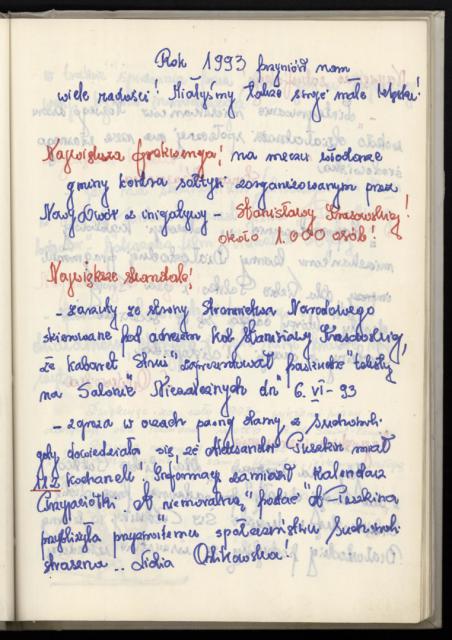 Rok 1993 przyniósł nam
wiele radości! Miałyśmy także swoje małe klęski!
Największa frekwencja! na meczu włodarze
gminy kontra sołtysi zorganizowanym przez
Nowy Dwór z inicjatywy - Stanisławy !
około 1.000 osób!
Największe skandale!
- zarzuty ze strony Stronnictwa Narodowego
skierowane pod adresem Kol. Stanisławy
że kabaret zaprezentował "paskudne" teksty
na Salonie Niezależnych dn 6.VI-93
- zgroza w oczach pewnej damy z Suchowoli
gdy dowiedziała się, że Aleksander Puszkin miał
113 kochanek. Informację zamieścił "Kalendarz
Przyjaciółki". A "niemoralną" postać A. Puszkina
przybliżyła przyzwoitemu społeczeństwu Suchowoli
straszna .. Lidia